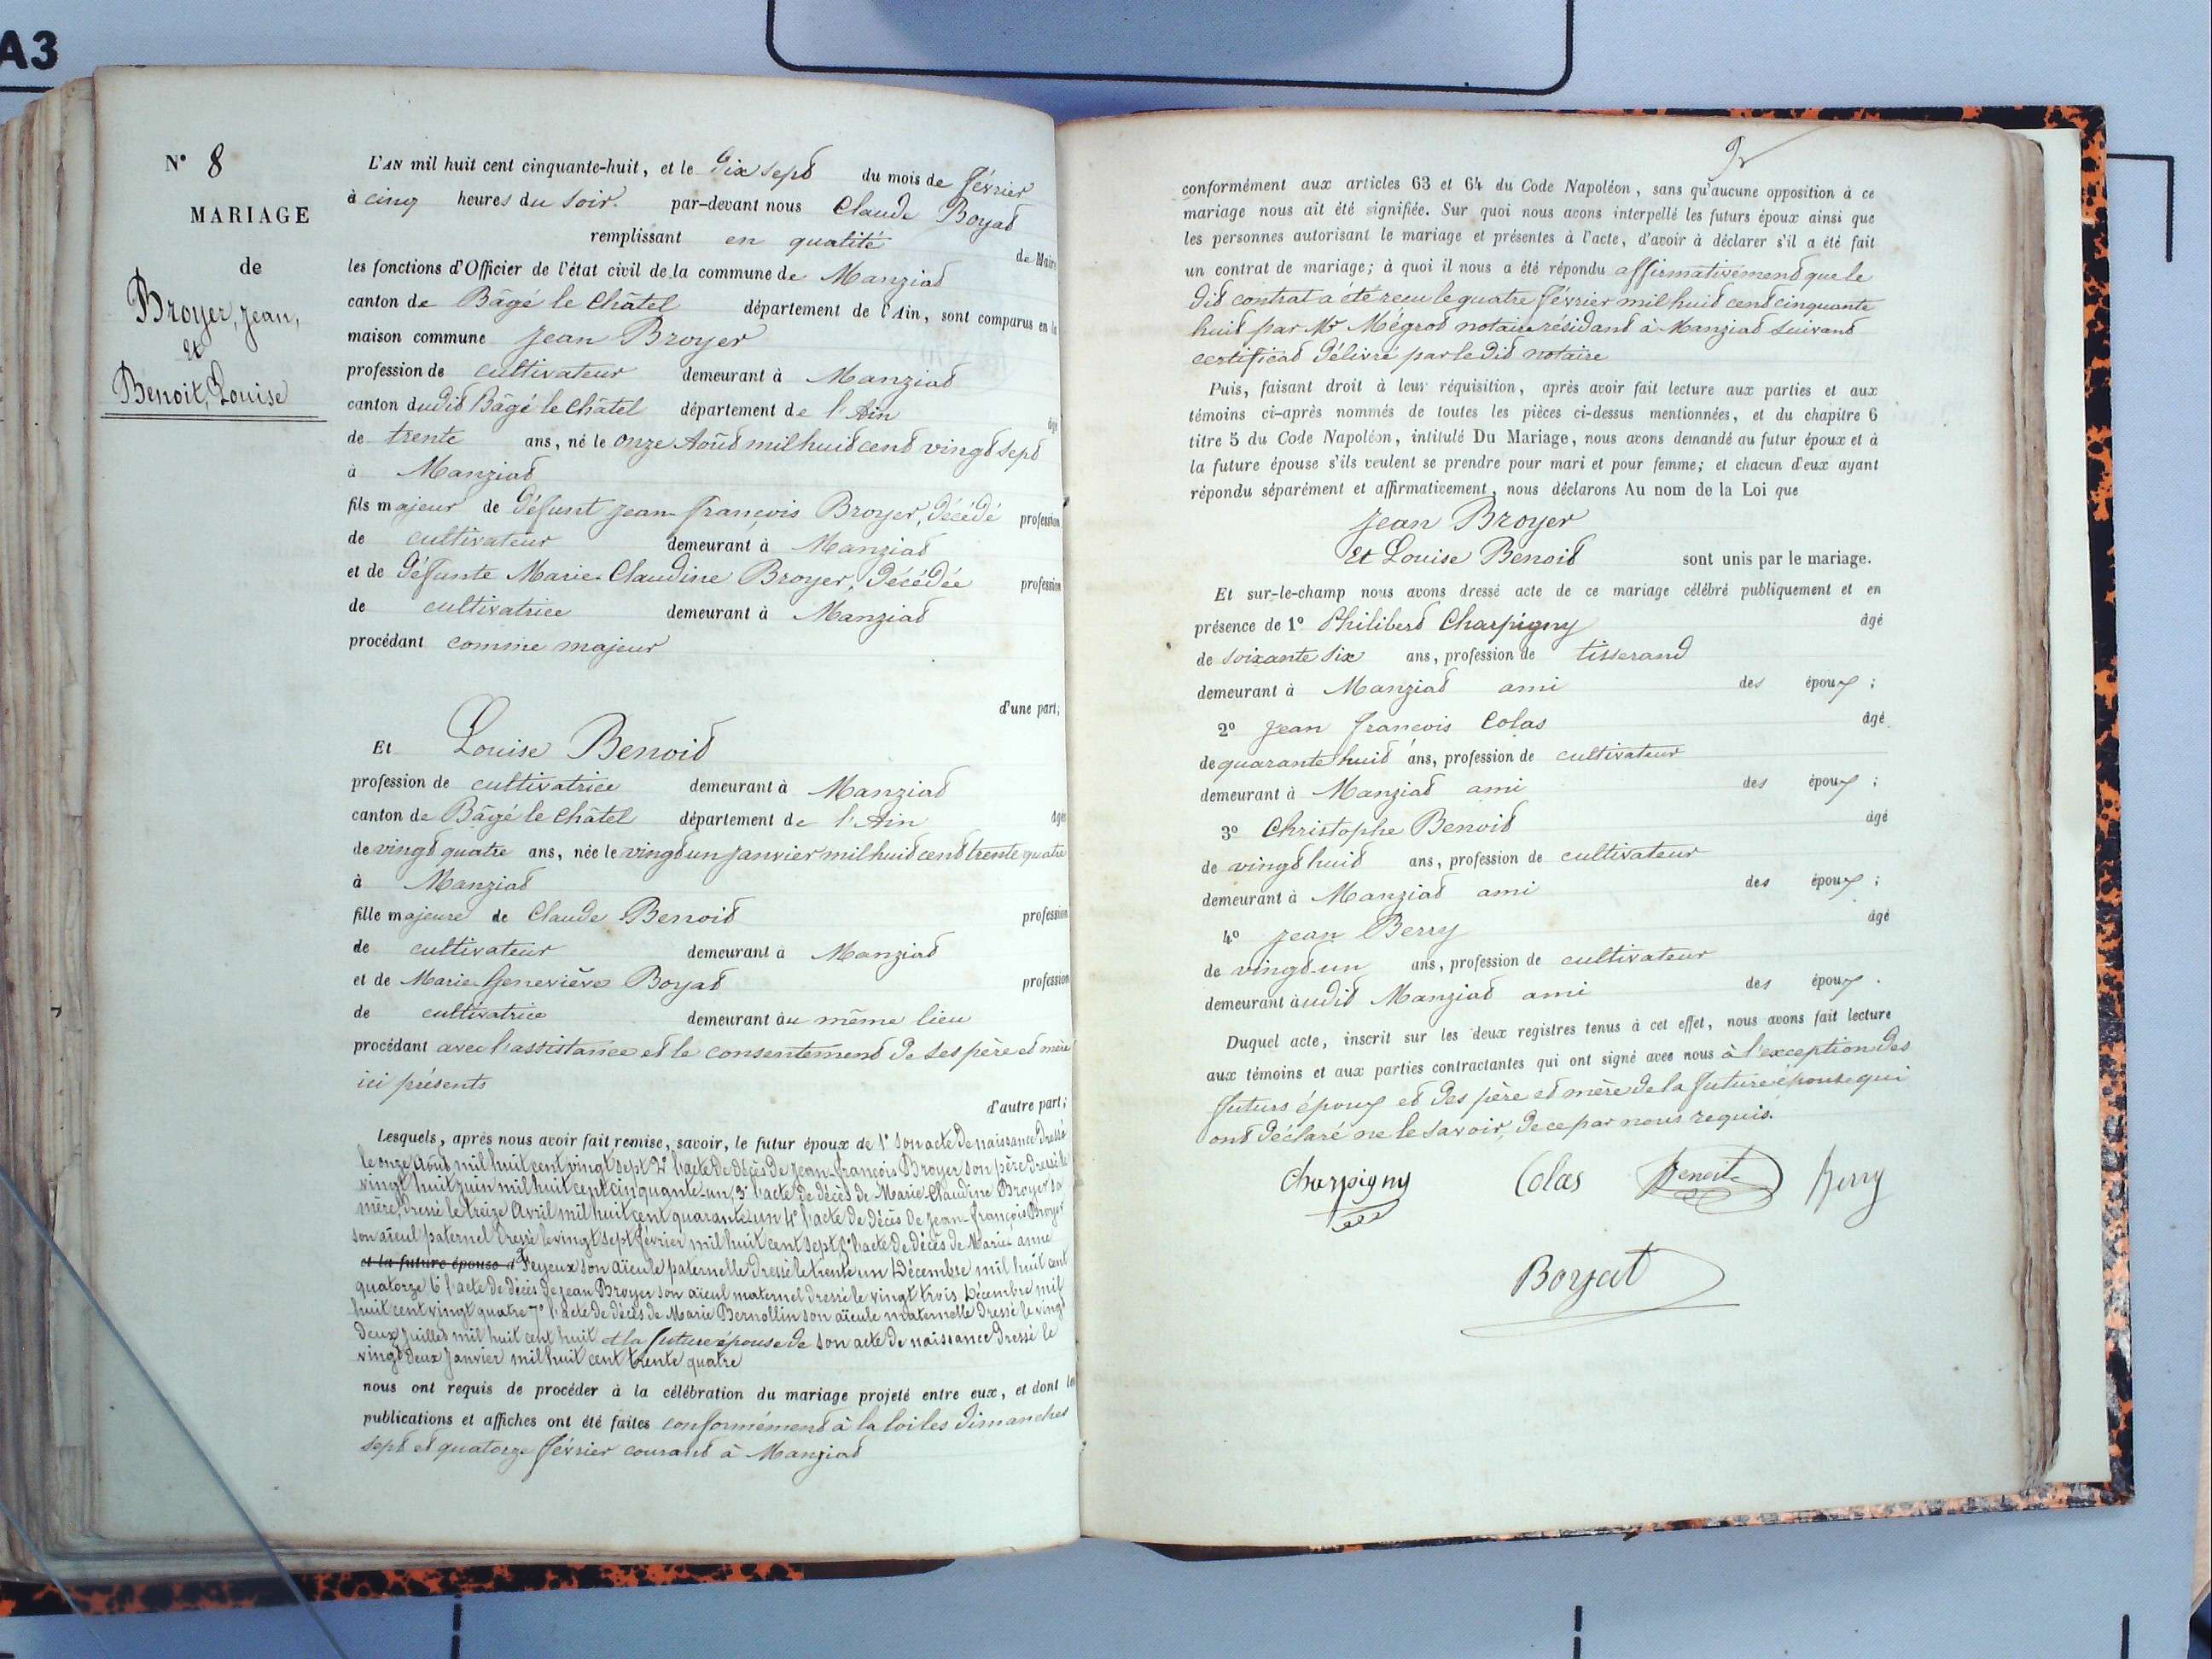 A3
N° 8
MARIAGE
de
Broyer, Jean,
et
Benoit, Louise
L'AN mil huit cent cinquante-huit, et le dix sept du mois de février
à cinq heures du soir. par-devant nous Claude Boyat
remplissant en qualité de Maire
les fonctions d'Officier de l'état civil de la commune de Manziat
canton de Bâgé le Châtel département de l'Ain, sont comparus en la
maison commune Jean Broyer
profession de cultivateur demeurant à Manziat
canton dudit Bâgé le Châtel département de l'Ain âgé
de trente ans, né le onze Août mil huit cent vingt sept
à Manziat
fils majeur de défunt Jean-françois Broyer, décédé profession
de cultivateur demeurant à Manziat
et de défunte Marie-Claudine Broyer, décédée profession
de cultivatrice demeurant à Manziat
procédant comme majeur
d'une part;
Et Louise Benoit
profession de cultivatrice demeurant à Manziat
canton de Bâgé le Châtel département de l'Ain âgée
de vingt quatre ans, née le vingt un janvier mil huit cent trente quatre
à Manziat
fille majeure de Claude Benoit profession
de cultivateur demeurant à Manziat
et de Marie-Geneviève Boyat profession
de cultivatrice demeurant au même lieu
procédant avec l'assistance et le consentement de ses père et mère
ici présents
d'autre part;
Lesquels, après nous avoir fait remise, savoir, le futur époux de 1° son acte de naissance dressé
le onze Août mil huit cent vingt sept 2° l'acte de décès de Jean-françois Broyer son père dressé le
vingt huit juin mil huit cent cinquante un 3° l'acte de décès de Marie-Claudine Broyer sa
mère, dressé le treize Avril mil huit cent quarante un 4° l'acte de décès de Jean-françois Broyer
son aïeul paternel dressé le vingt sept février mil huit cent sept 5° l'acte de décès de Marie anne
et la future épouse d Feyeux son aïeule paternelle dressé le trente un Décembre mil huit cent
quatorze 6° l'acte de décès de Jean Broyer son aïeul maternel dressé le vingt trois Décembre mil
huit cent vingt quatre 7° l'acte de décès de Marie Bernollin son aïeule maternelle dressé le vingt
deux juillet mil huit cent huit et la future épouse de son acte de naissance dressé le
vingt deux Janvier mil huit cent trente quatre
nous ont requis de procéder à la célébration du mariage projeté entre eux, et dont les
publications et affiches ont été faites conformément à la loi les dimanches
sept et quatorze février courant à Manziat
conformément aux articles 63 et 64 du Code Napoléon, sans qu'aucune opposition à ce
mariage nous ait été signifiée. Sur quoi nous avons interpellé les futurs époux ainsi que
les personnes autorisant le mariage et présentes à l'acte, d'avoir à déclarer s'il a été fait
un contrat de mariage; à quoi il nous a été répondu affirmativement que le
dit contrat a été reçu le quatre février mil huit cent cinquante
huit par Mr Mégrot notaire résidant à Manziat suivant
certificat délivré par le dit notaire
Puis, faisant droit à leur réquisition, après avoir fait lecture aux parties et aux
témoins ci-après nommés de toutes les pièces ci-dessus mentionnées, et du chapitre 6
titre 5 du Code Napoléon, intitulé Du Mariage, nous avons demandé au futur époux et à
la future épouse s'ils veulent se prendre pour mari et pour femme; et chacun d'eux ayant
répondu séparément et affirmativement, nous déclarons Au nom de la Loi que
Jean Broyer
Et Louise Benoit sont unis par le mariage.
Et sur-le-champ nous avons dressé acte de ce mariage célébré publiquement et en
présence de 1° Philibert Charpigny âgé
de soixante six ans, profession de tisserand
demeurant à Manziat ami des époux ;
2° Jean françois Colas âgé
de quarante huit ans, profession de cultivateur
demeurant à Manziat ami des époux ;
3° Christophe Benoit âgé
de vingt huit ans, profession de cultivateur
demeurant à Manziat ami des époux ;
4° Jean Berry âgé
de vingt-un ans, profession de cultivateur
demeurant audit Manziat ami des époux .
Duquel acte, inscrit sur les deux registres tenus à cet effet, nous avons fait lecture
aux témoins et aux parties contractantes qui ont signé avec nous à l'exception des
futurs époux et des père et mère de la future épouse qui
ont déclaré ne le savoir, de ce par nous requis.
Charpigny Colas Benoit Berry
Boyat